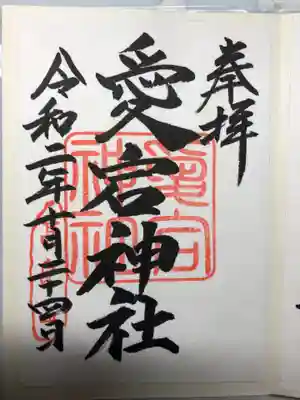 奉拝
愛宕神社
令和二年十月二十四日
愛宕
神社